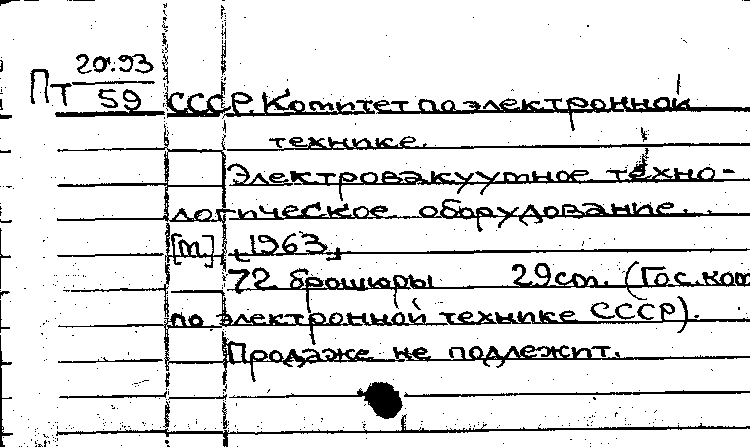 Пт 20.93
59 СССР. Комитет по электронной
технике.
Электровакуумное техно-
логическое оборудование.
[m.], 1963
72 брошюры 29cm. (Гос.ком
по электронной технике СССР).
Продаже не подлежит.